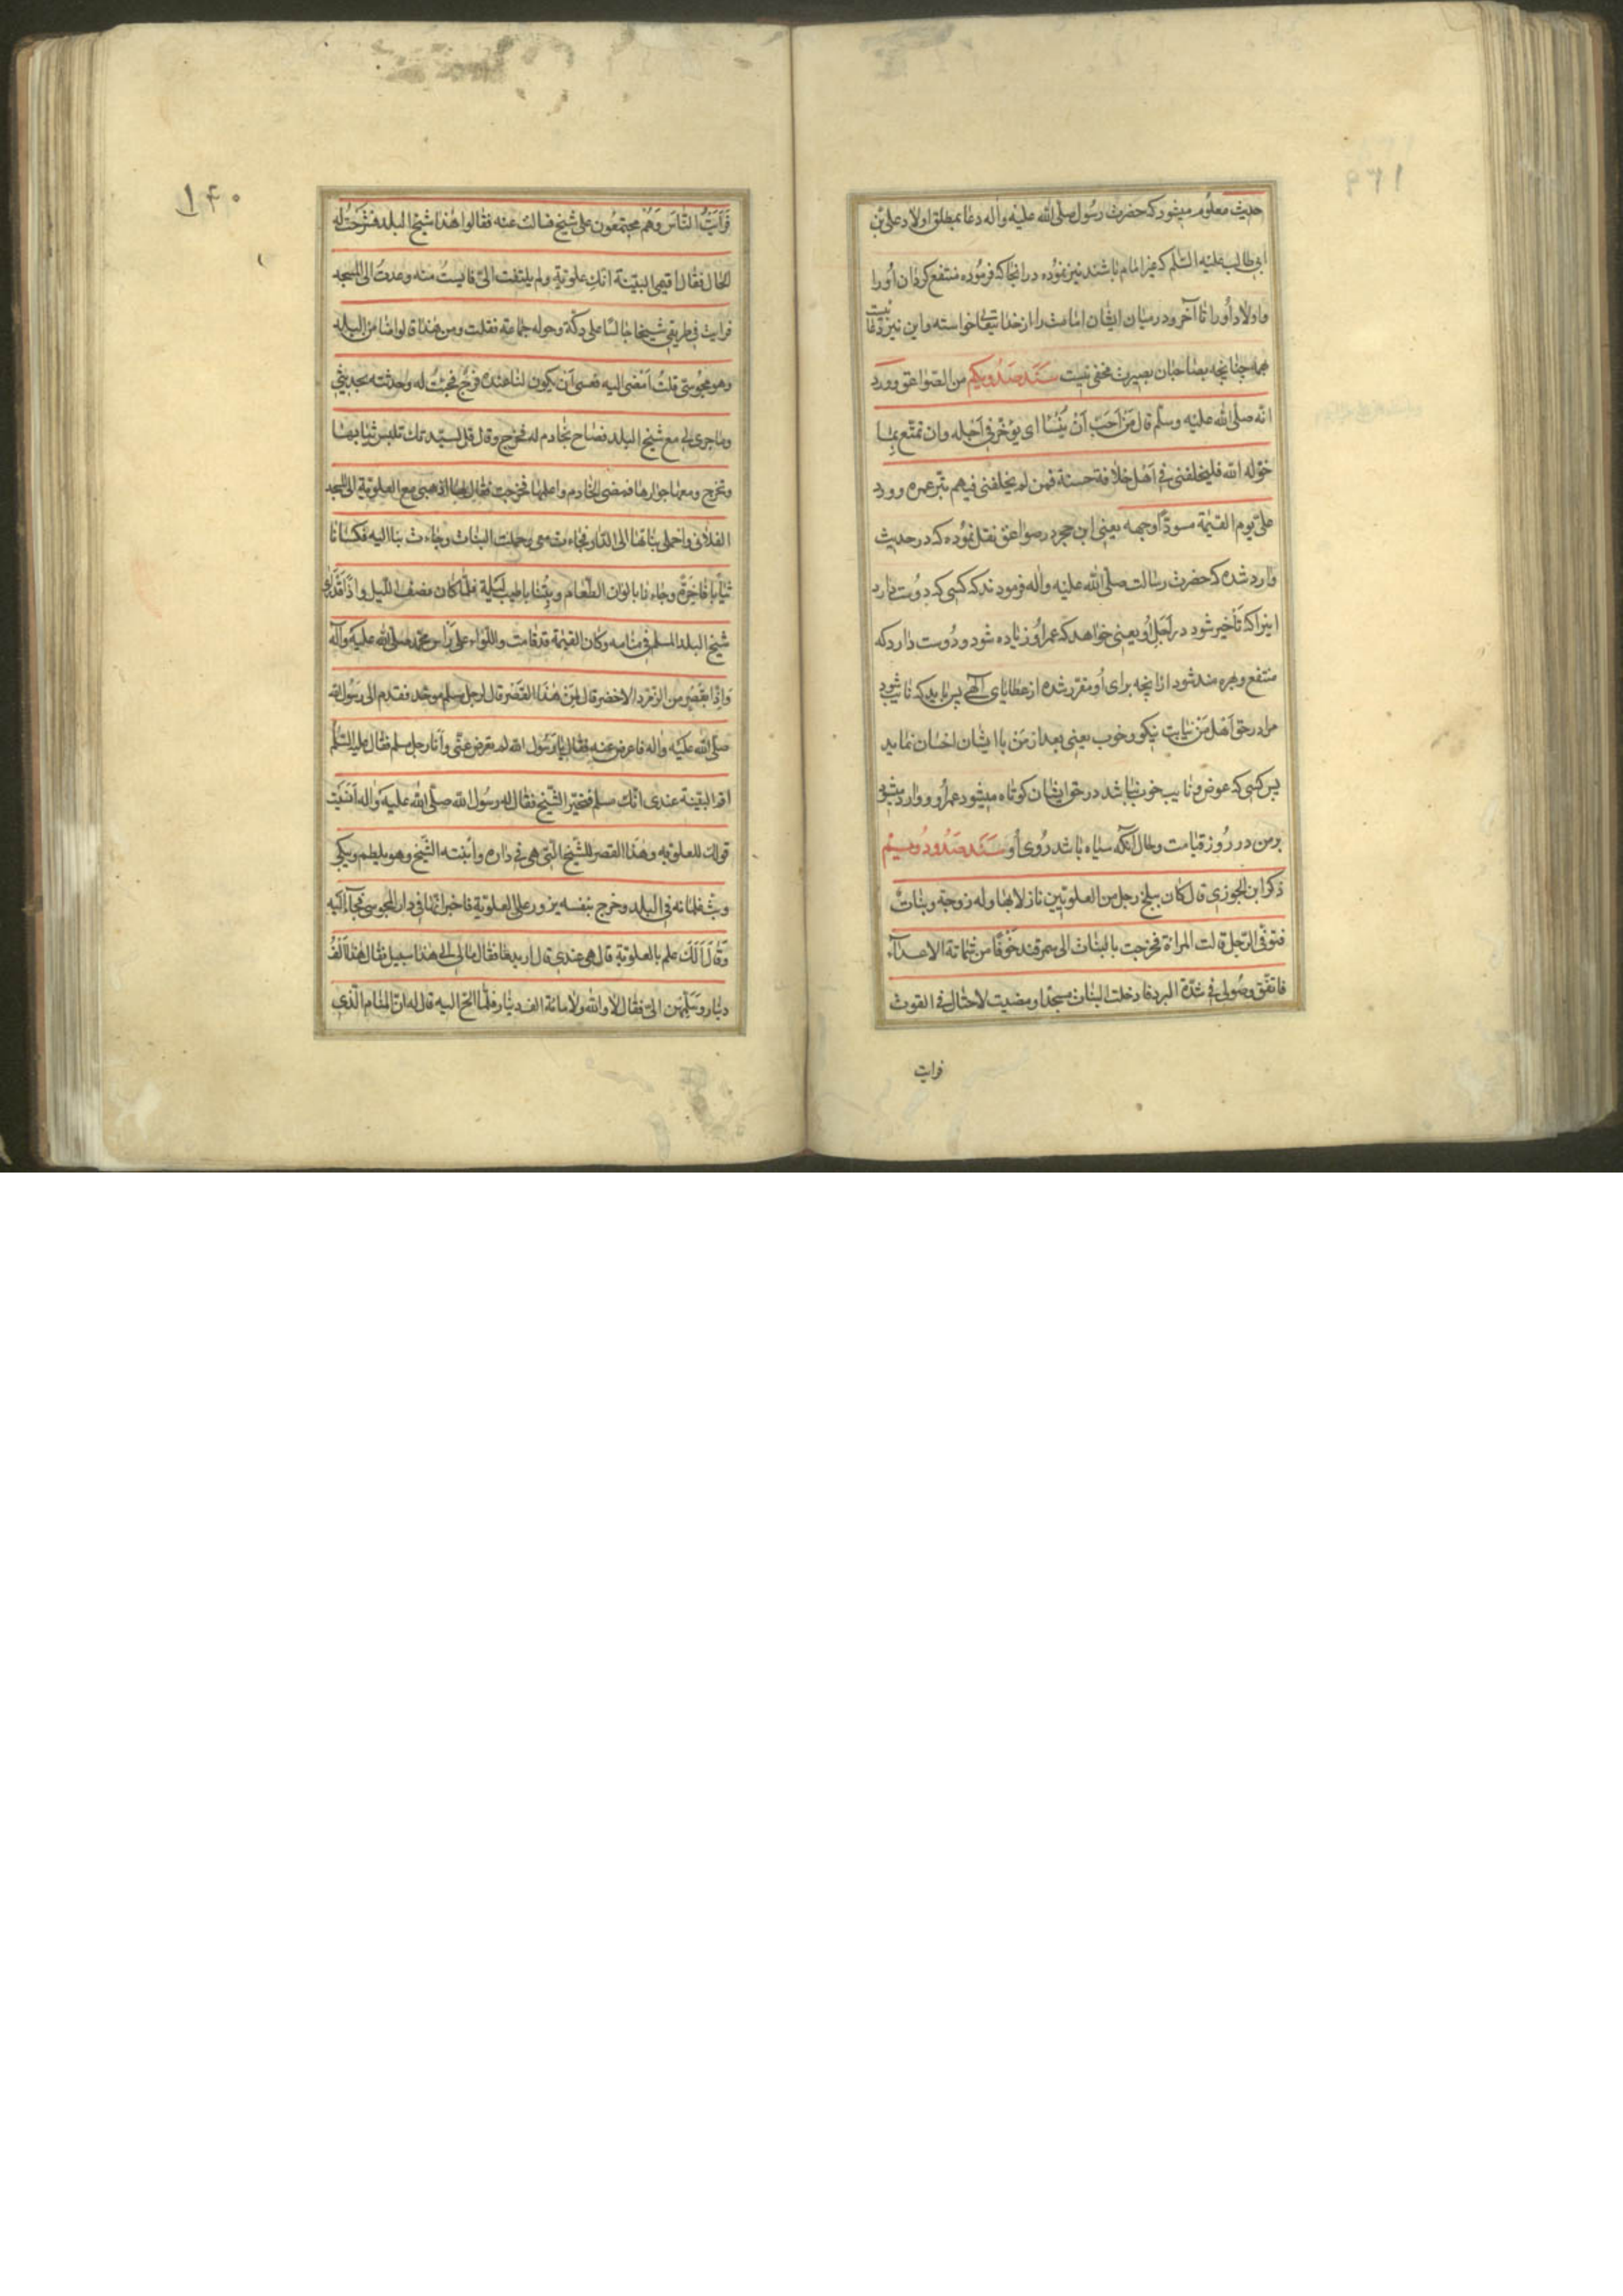 حدیث معلوم میشود که حضرت رسول صلی الله علیه واله دعا بمطلق اولاد علی بن
ابی طالب علیه السلم که غیر امام باشند نیز نموده در انجا که فرموده منتفع کردان اورا
واولاد اورا تا آخر ودر میان ایشان امامت را از خدا خواسته واین نیز
همه چنانچه بصاحبان بصیرت مخفی نیست سند صد ویکم من الصواعق وورد
انه صلی الله علیه وسلم قال من احب ان ینسا ای یوخر فی اجله وان تمتع بما
خوله الله فلیخلفنی فی اهل خلافة حسنة فمن لم یخلفنی فیهم بتر عمره وورد
علی یوم القیمة مسودا وجهه یعنی ابن حجر در صواعق نقل نموده که در حدیث
وارد شده که حضرت رسالت صلی الله علیه واله فرمودند که کسی که دوست دارد
اینرا که تاخیر شود در اجل او یعنی خواهد که عمر او زیاده شود ودوست دارد که
منتفع وبهره مند شود از انچه برای او مقرر شده از عطایای الهی پس باید که نایب شود
مرا در حق اهل من نیابت نیکو وخوب یعنی بعد از من با ایشان احسان نماید
پس کسی که عوض ونایب خوب نباشد در حق ایشان کوتاه میشود عمر او ووارد میشود
بر من در روز قیامت وحال آنکه سیاه باشد روی او سند صد ودویم
ذکر ابن الجوزی قال کان ببلخ رجل من العلویین نازلا بها وله زوجة وبنات
فتوفی الرجل قالت المراة فخرجت بالبنات الی سمرقند خوفا من شماتة الاعداء
فاتفق وصولی فی شدة البرد فادخلت البنات مسجدا ومضیت لاحتال فی القوت
فرایت
۱۴۰
فرایت الناس وهم مجتمعون علی شیخ فسالت عنه فقالوا هذا شیخ البلد فشرحت له
الحال فقال اقیمی البینة انک علویة ولم یلتفت الی فایست منه وعدت الی المسجد
فرایت فی طریقی شیخا جالسا علی دکة وحوله جماعة فقلت ومن هذا قالوا ضامن البلد
وهو مجوسی قلت امضی الیه فعسی ان یکون لنا عنده فرج فجئت له وحدثته بحدیثی
وما جری لی مع شیخ البلد فصاح بخادم له فخرج وقال قل لسیدتک تلبس ثیابها
وتخرج ومعها جوارها فمضی الخادم واعلمها فخرجت فقال لها اذهبی مع العلویة الی المسجد
الفلانی واحملی بناتها الی الدار فجاءت معی وحملت البنات وجاءت بنا الیه فکسانا
ثیابا فاخرة وجاءنا بالوان الطعام وبتنا باطیب لیلة فلما کان نصف اللیل واذا قدرای
شیخ البلد المسلم فی منامه وکان القیمة قد قامت واللواء علی راس محمد صلی الله علیه وآله
واذا بقصر من الزمرد الاخضر قال لمن هذا القصر قال لرجل مسلم موحد فقدم الی رسول الله
صلی الله علیه واله فاعرض عنه فقال یا رسول الله لم تعرض عنی وانا رجل مسلم فقال علیه السلم
اقم البینة عندی انک مسلم فتحیر الشیخ فقال له رسول الله صلی الله علیه واله انسیت
قولک للعلویه وهذا القصر للشیخ التی هی فی داره وانتبه الشیخ وهو یلطم ویبکی
وبث غلمانه فی البلد وخرج بنفسه یزور علی العلویة فاخبر انها فی دار المجوسی فجاء الیه
وقال الک علم بالعلویة قال هی عندی قال اریدها فقال مالی الی هذا سبیل فقال هذا الف
دینار وسلمهن الی فقال لا والله ولا مائة الف دینار فلما الح الیه قال له ان المنام الذی